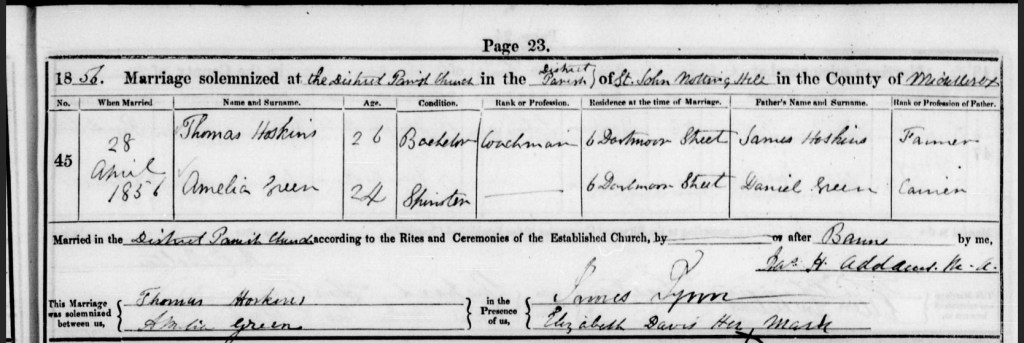 Page 23.
1856. Marriage solemnized at the District Parish Church in the District Parish of St. John Notting Hill in the County of Middlesex
No. When Married Name and Surname. Age. Condition. Rank or Profession. Residence at the time of Marriage. Father's Name and Surname. Rank or Profession of Father.
45 28 April 1856 Thomas Hoskins 26 Bachelor Coachman 6 Dartmoor Street James Hoskins Farmer
Amelia Green 24 Spinster 6 Dartmoor Street Daniel Green Carrier
Married in the District Parish Church according to the Rites and Ceremonies of the Established Church, by or after Banns by me,
Jas H. M.A.
This Marriage was solemnized between us, Thomas Hoskins in the Presence of us, James
Amelia Green Elizabeth Davis Her Mark